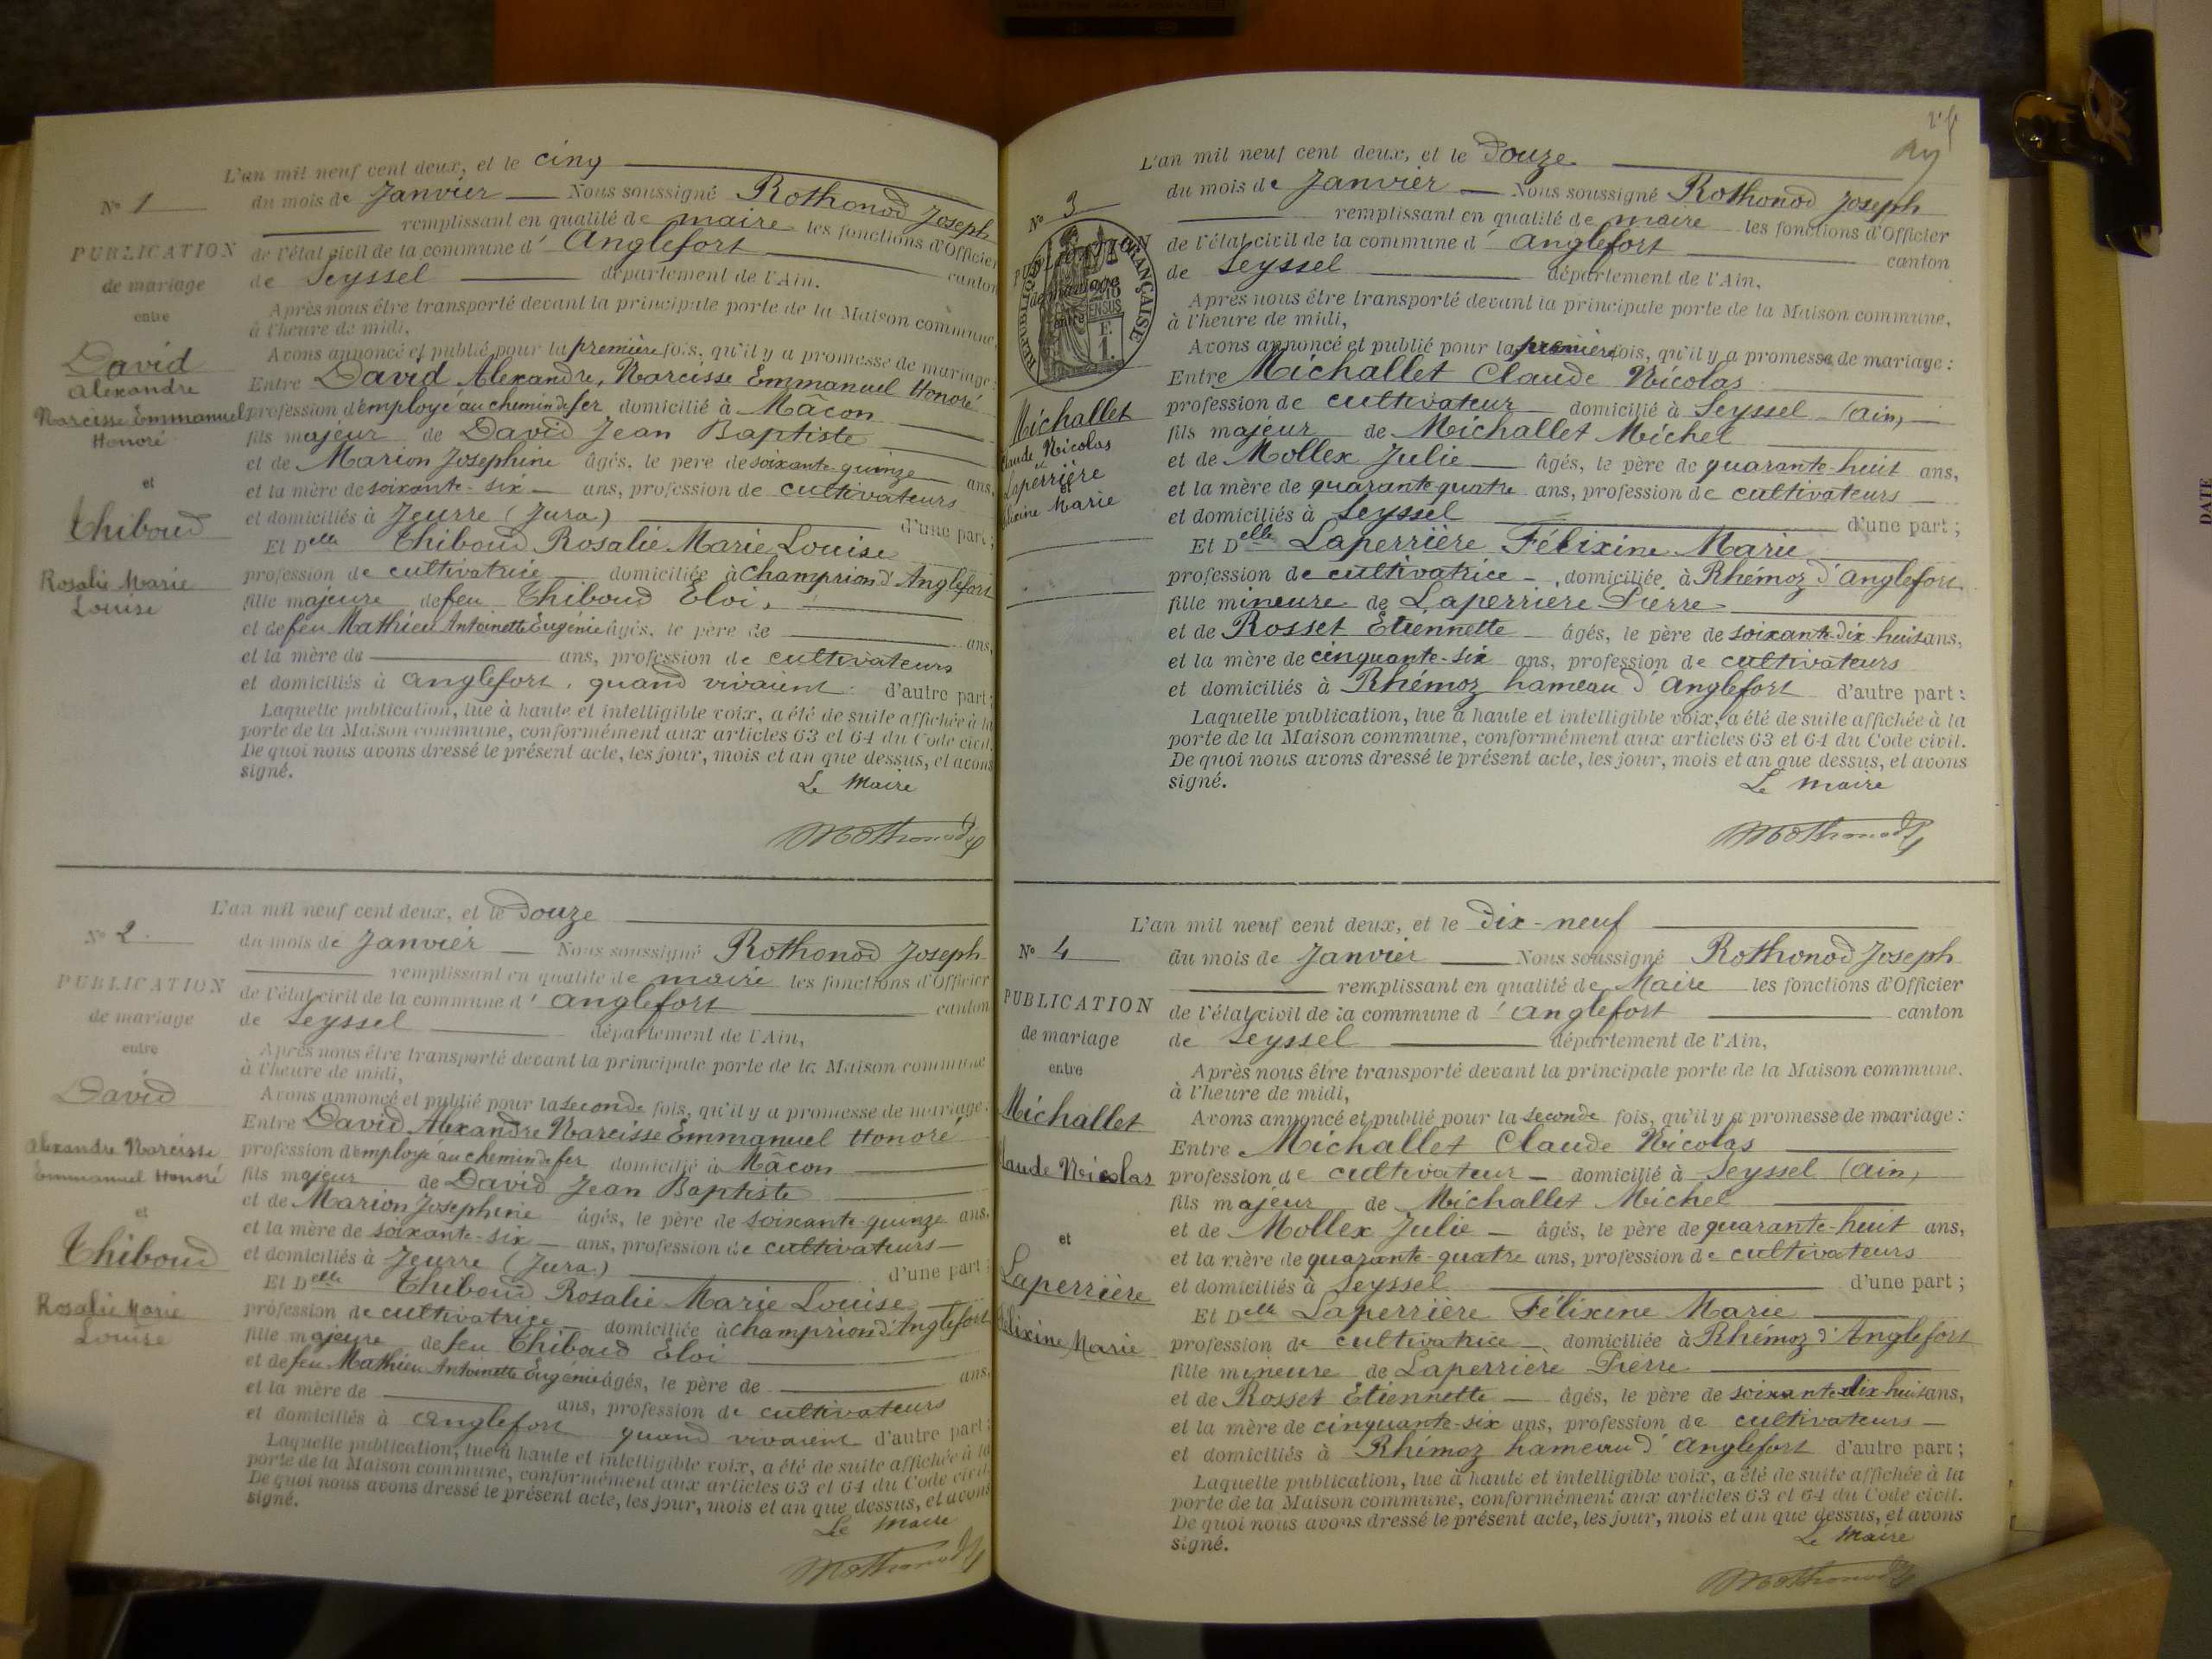 L'an mil neuf cent deux, et le cinq
Nº 1
du mois de Janvier — Nous soussigné Rothonod Joseph
remplissant en qualité de maire les fonctions d'Officier
PUBLICATION
de mariage
entre
David
Alexandre
Narcisse Emmanuel
Honoré
et
Thiboud
Rosalie Marie
Louise
de l'état civil de la commune d'Anglefort canton
de Seyssel département de l'Ain.
Après nous être transporté devant la principale porte de la Maison commune,
à l'heure de midi,
Avons annoncé et publié pour la première fois, qu'il y a promesse de mariage:
Entre David Alexandre, Narcisse Emmanuel Honoré
profession d'employé au chemin de fer domicilié à Mâcon
fils majeur de David Jean Baptiste
et de Marion Josephine âgés, le père de soixante-quinze ans,
et la mère de soixante-six — ans, profession de cultivateurs
et domiciliés à Jeurre (Jura) d'une part;
Et Delle Thiboud Rosalie Marie Louise
profession de cultivatrice domiciliée à Champriond d'Anglefort
fille majeure de feu Thiboud Eloi,
et de feu Mathieu Antoinette Eugénie âgés, le père de ans,
et la mère de ans, profession de cultivateurs
et domiciliés à Anglefort, quand vivaient d'autre part;
Laquelle publication, lue à haute et intelligible voix, a été de suite affichée à la
porte de la Maison commune, conformément aux articles 63 et 64 du Code civil.
De quoi nous avons dressé le présent acte, les jour, mois et an que dessus, et avons
signé.
Le Maire
Rothonod J
L'an mil neuf cent deux, et le douze
Nº 2
du mois de Janvier — Nous soussigné Rothonod Joseph
remplissant en qualité de maire les fonctions d'Officier
PUBLICATION
de mariage
entre
David
Alexandre Narcisse
Emmanuel Honoré
et
Thiboud
Rosalie Marie
Louise
de l'état civil de la commune d'Anglefort canton
de Seyssel département de l'Ain,
Après nous être transporté devant la principale porte de la Maison commune
à l'heure de midi,
Avons annoncé et publié pour la seconde fois, qu'il y a promesse de mariage.
Entre David Alexandre Narcisse Emmanuel Honoré
profession d'employé au chemin de fer domicilié à Mâcon
fils majeur de David Jean Baptiste
et de Marion Josephine âgés, le père de soixante-quinze ans.
et la mère de soixante-six — ans, profession de cultivateurs —
et domiciliés à Jeurre (Jura) d'une part;
Et Delle Thiboud Rosalie Marie Louise
profession de cultivatrice — domiciliée à Champriond d'Anglefort
fille majeure de feu Thiboud Eloi
et de feu Mathieu Antoinette Eugénie âgés, le père de ans.
et la mère de ans, profession de cultivateurs
et domiciliés à Anglefort quand vivaient d'autre part;
Laquelle publication, lue à haute et intelligible voix, a été de suite affichée à la
porte de la Maison commune, conformément aux articles 63 et 64 du Code civil.
De quoi nous avons dressé le présent acte, les jour, mois et an que dessus, et avons
signé.
Le Maire
Rothonod J
L'an mil neuf cent deux, et le Douze
Nº 3
du mois de Janvier — Nous soussigné Rothonod Joseph
remplissant en qualité de maire les fonctions d'Officier
PUBLICATION
de mariage
entre
RÉPUBLIQUE FRANÇAISE
Michallet
Claude Nicolas
et
Laperrière
Félixine Marie
de l'état civil de la commune d'Anglefort canton
de Seyssel département de l'Ain,
Après nous être transporté devant la principale porte de la Maison commune,
à l'heure de midi,
Avons annoncé et publié pour la première fois, qu'il y a promesse de mariage:
Entre Michallet Claude Nicolas
profession de cultivateur — domicilié à Seyssel (Ain) —
fils majeur de Michallet Michel
et de Mollex Julie — âgés, le père de quarante-huit ans,
et la mère de quarante quatre ans, profession de cultivateurs —
et domiciliés à Seyssel d'une part;
Et Delle Laperrière Félixine Marie
profession de cultivatrice — domiciliée à Rhémoz d'Anglefort
fille mineure de Laperrière Pierre
et de Rosset Etiennette — âgés, le père de soixante-dix-huit ans,
et la mère de cinquante-six ans, profession de cultivateurs
et domiciliés à Rhémoz hameau d'Anglefort d'autre part:
Laquelle publication, lue à haute et intelligible voix, a été de suite affichée à la
porte de la Maison commune, conformément aux articles 63 et 64 du Code civil.
De quoi nous avons dressé le présent acte, les jour, mois et an que dessus, et avons
signé.
Le Maire
Rothonod J
L'an mil neuf cent deux, et le dix-neuf
Nº 4
du mois de Janvier — Nous soussigné Rothonod Joseph
remplissant en qualité de Maire les fonctions d'Officier
PUBLICATION
de mariage
entre
Michallet
Claude Nicolas
et
Laperrière
Félixine Marie
de l'état civil de la commune d'Anglefort canton
de Seyssel département de l'Ain,
Après nous être transporté devant la principale porte de la Maison commune.
à l'heure de midi,
Avons annoncé et publié pour la seconde fois, qu'il y a promesse de mariage:
Entre Michallet Claude Nicolas
profession de cultivateur — domicilié à Seyssel (Ain)
fils majeur de Michallet Michel
et de Mollex Julie — âgés, le père de quarante-huit ans,
et la mère de quarante-quatre ans, profession de cultivateurs
et domiciliés à Seyssel d'une part;
Et Delle Laperrière Félixine Marie
profession de cultivatrice — domiciliée à Rhémoz d'Anglefort
fille mineure de Laperrière Pierre
et de Rosset Etiennette — âgés, le père de soixante dix huit ans,
et la mère de cinquante-six ans, profession de cultivateurs —
et domiciliés à Rhémoz hameau d'Anglefort d'autre part;
Laquelle publication, lue à haute et intelligible voix, a été de suite affichée à la
porte de la Maison commune, conformément aux articles 63 et 64 du Code civil.
De quoi nous avons dressé le présent acte, les jour, mois et an que dessus, et avons
signé.
Le Maire
Rothonod J
DATE